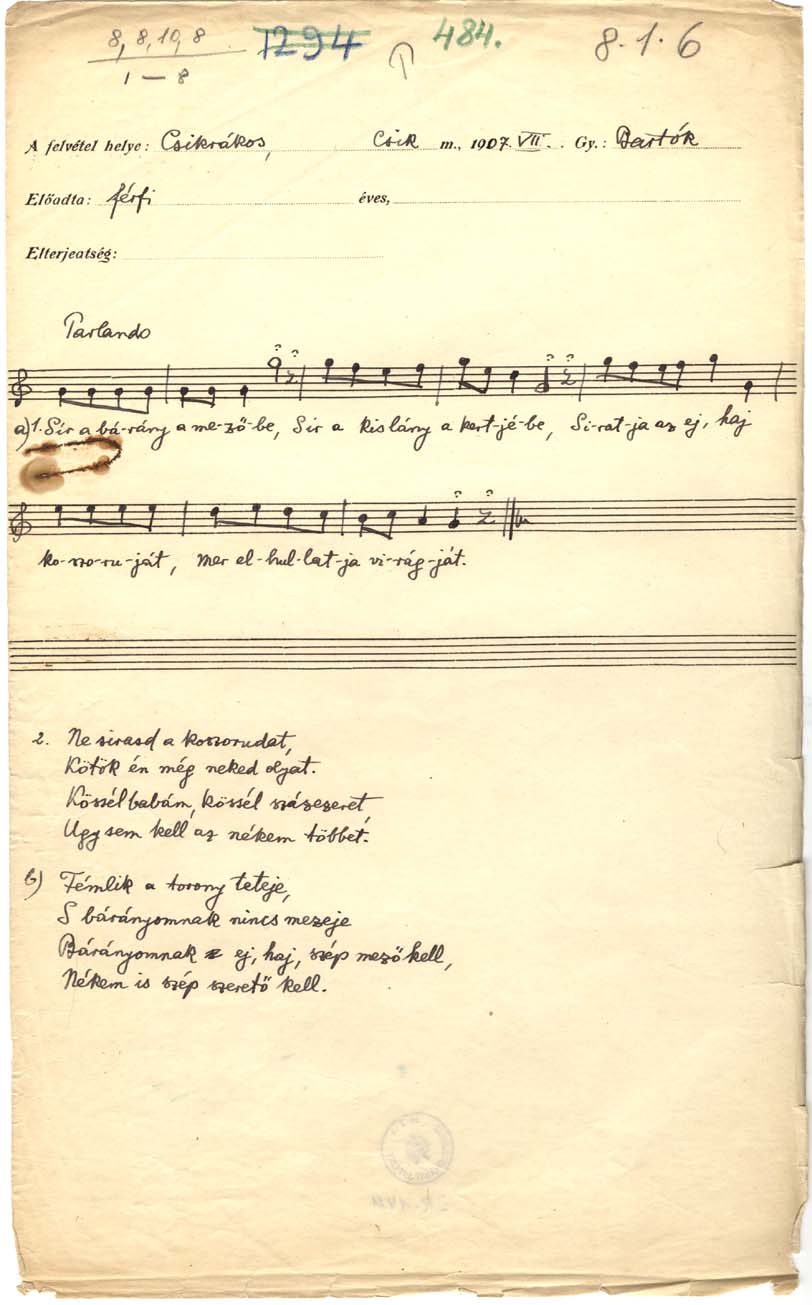 8, 8, 10, 8
1 — 8
1294
484.
8.1.6
A felvétel helye: Csikrákos, Csik m., 1907. VII. Gy.: Bartók
Előadta: férfi éves,
Elterjedtség:
Parlando
a) 1. Sír a bá-rány a me-ző-be, Sír a kislány a kert-jé-be, Si-rat-ja az ej, haj
ko-szo-ru-ját, mer el-hul-lat-ja vi-rág-ját.
2. Ne sirasd a koszorudat,
Kötök én még neked olyat.
Kössél babám, kössél százezeret,
Ugy sem kell az nékem többet.
b) Fémlik a torony teteje,
S bárányomnak nincs mezeje
Bárányomnak ej, haj, szép mező kell,
Nékem is szép szerető kell.